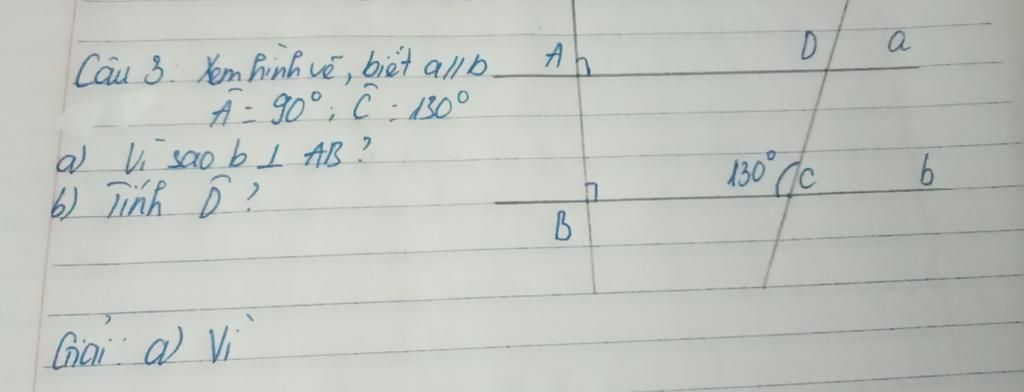 Câu 3. Xem hình vẽ, biết a//b
Â = 90°; Ĉ = 130°
a) Vì sao b ⊥ AB?
b) Tính D̂?
A D a
130° C b
B
Giải: a) Vì